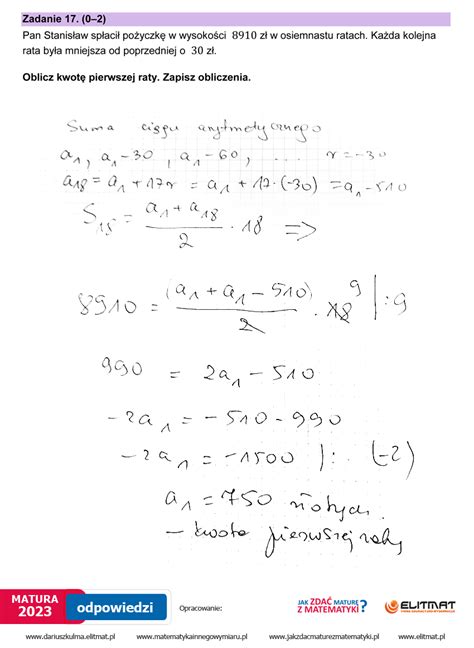 Zadanie 17. (0–2)
Pan Stanisław spłacił pożyczkę w wysokości 8910 zł w osiemnastu ratach. Każda kolejna
rata była mniejsza od poprzedniej o 30 zł.
Oblicz kwotę pierwszej raty. Zapisz obliczenia.
Suma ciągu arytmetycznego
a₁, a₁-30, a₁-60, ... r=-30
a₁₈ = a₁ + 17r = a₁ + 17·(-30) = a₁ - 510
S₁₈ = (a₁ + a₁₈)/2 · 18 =>
8910 = (a₁ + a₁ - 510)/2 · 18 9 |:9
990 = 2a₁ - 510
-2a₁ = -510 - 990
-2a₁ = -1500 |: (-2)
a₁ = 750 złotych.
- kwota pierwszej raty
MATURA
2023
odpowiedzi
Opracowanie:
JAK ZDAĆ MATURĘ
Z MATEMATYKI?
ELITMAT
www.dariuszkulma.elitmat.pl www.matematykainnegowymiaru.pl www.jakzdacmaturezmatematyki.pl www.elitmat.pl